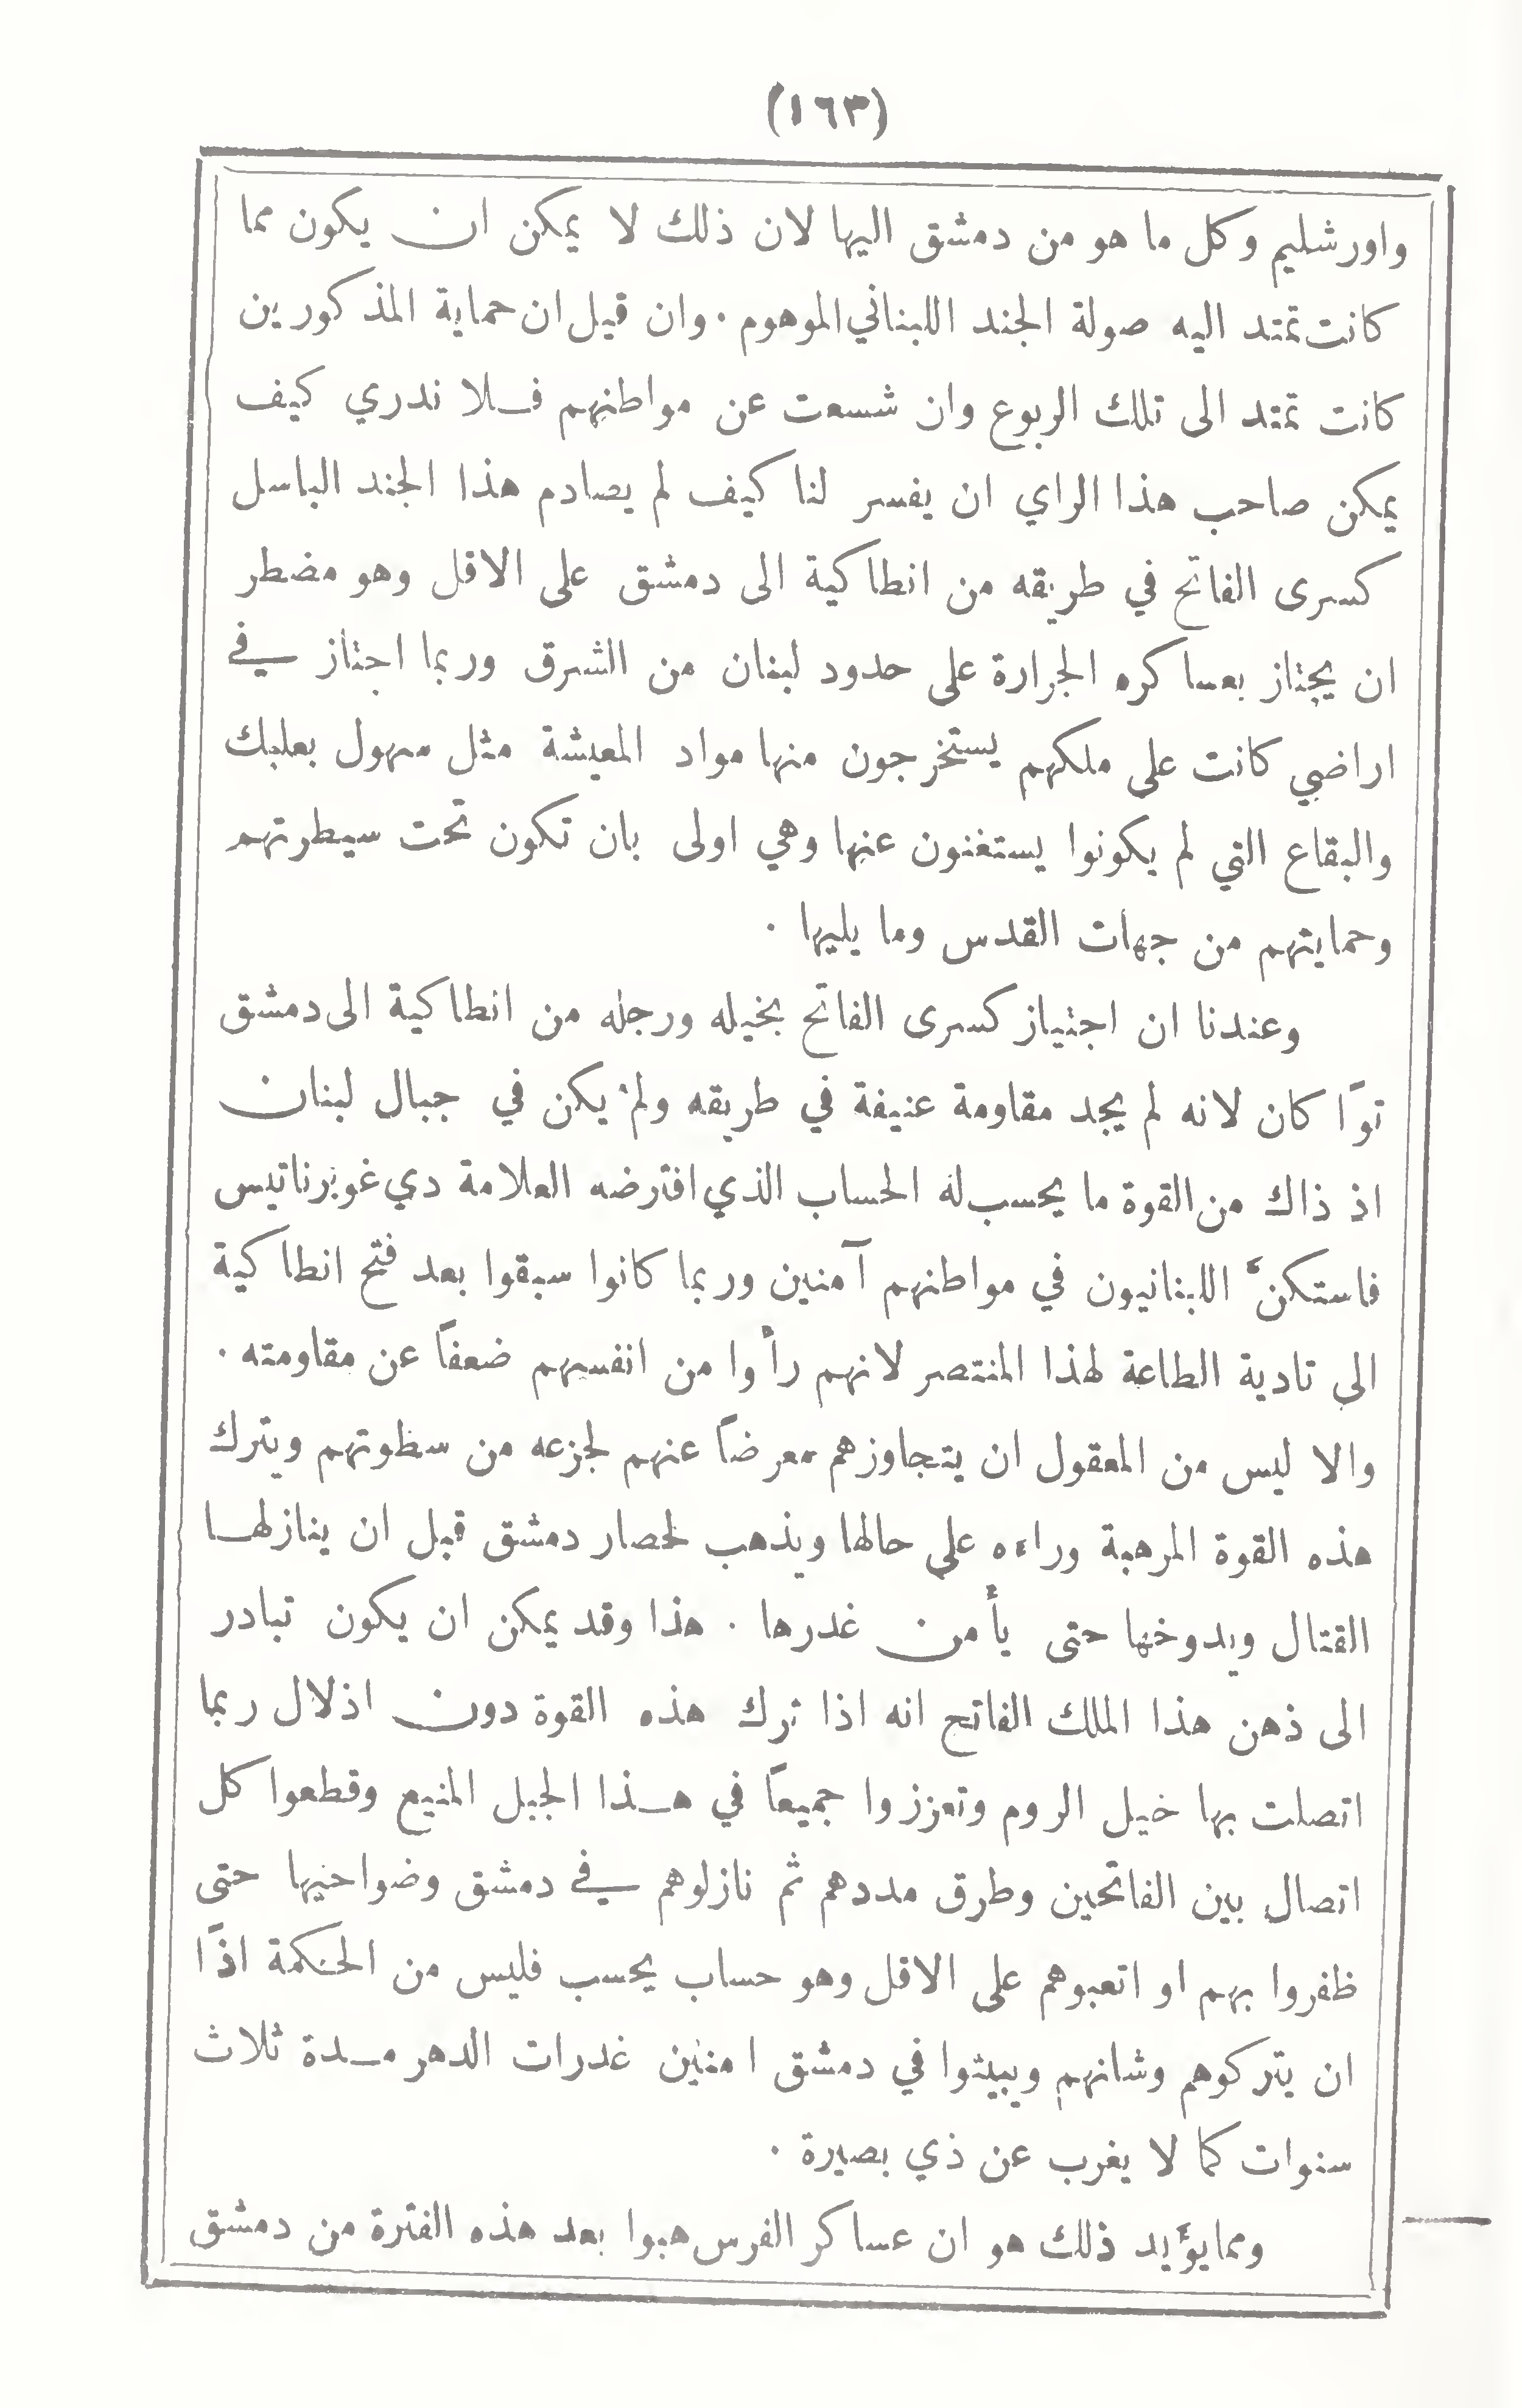 (١٦٣)
واورشليم وكل ما هو من دمشق اليها لان ذلك لا يمكن ان يكون مما
كانت تمتد اليه صولة الجند اللبناني الموهوم . وان قيل ان حماية المذكورين
كانت تمتد الى تلك الربوع وان شسعت عن مواطنهم فلا ندري كيف
يمكن صاحب هذا الراي ان يفسر لنا كيف لم يصادم هذا الجند الباسل
كسرى الفاتح في طريقه من انطاكية الى دمشق على الاقل وهو مضطر
ان يجتاز بعساكره الجرارة على حدود لبنان من الشرق وربما اجتاز في
اراضي كانت على ملكهم يستخرجون منها مواد المعيشة مثل سهول بعلبك
والبقاع التي لم يكونوا يستغنون عنها وهي اولى بان تكون تحت سيطرتهم
وحمايتهم من جهات القدس وما يليها .
وعندنا ان اجتياز كسرى الفاتح بخيله ورجله من انطاكية الى دمشق
توًا كان لانه لم يجد مقاومة عنيفة في طريقه ولم يكن في جبال لبنان
اذ ذاك من القوة ما يحسب له الحساب الذي افترضه العلامة دي غوبرناتيس
فاستكنَّ اللبنانيون في مواطنهم آمنين وربما كانوا سبقوا بعد فتح انطاكية
الى تادية الطاعة لهذا المنتصر لانهم رأَوا من انفسهم ضعفًا عن مقاومته .
والا ليس من المعقول ان يتجاوزهم معرضًا عنهم لجزعه من سطوتهم ويترك
هذه القوة المرهبة وراءه على حالها ويذهب لحصار دمشق قبل ان ينازلها
القتال ويدوخها حتى يأمن غدرها . هذا وقد يمكن ان يكون تبادر
الى ذهن هذا الملك الفاتح انه اذا ترك هذه القوة دون اذلال ربما
اتصلت بها خيل الروم وتعززوا جميعًا في هذا الجبل المنيع وقطعوا كل
اتصال بين الفاتحين وطرق مددهم ثم نازلوهم في دمشق وضواحيها حتى
ظفروا بهم او اتعبوهم على الاقل وهو حساب يحسب فليس من الحنكمة اذًا
ان يتركوهم وشانهم ويبيتوا في دمشق امنين غدرات الدهر مدة ثلاث
سنوات كما لا يغرب عن ذي بصيرة .
ومما يؤَيد ذلك هو ان عساكر الفرس هبوا بعد هذه الفترة من دمشق